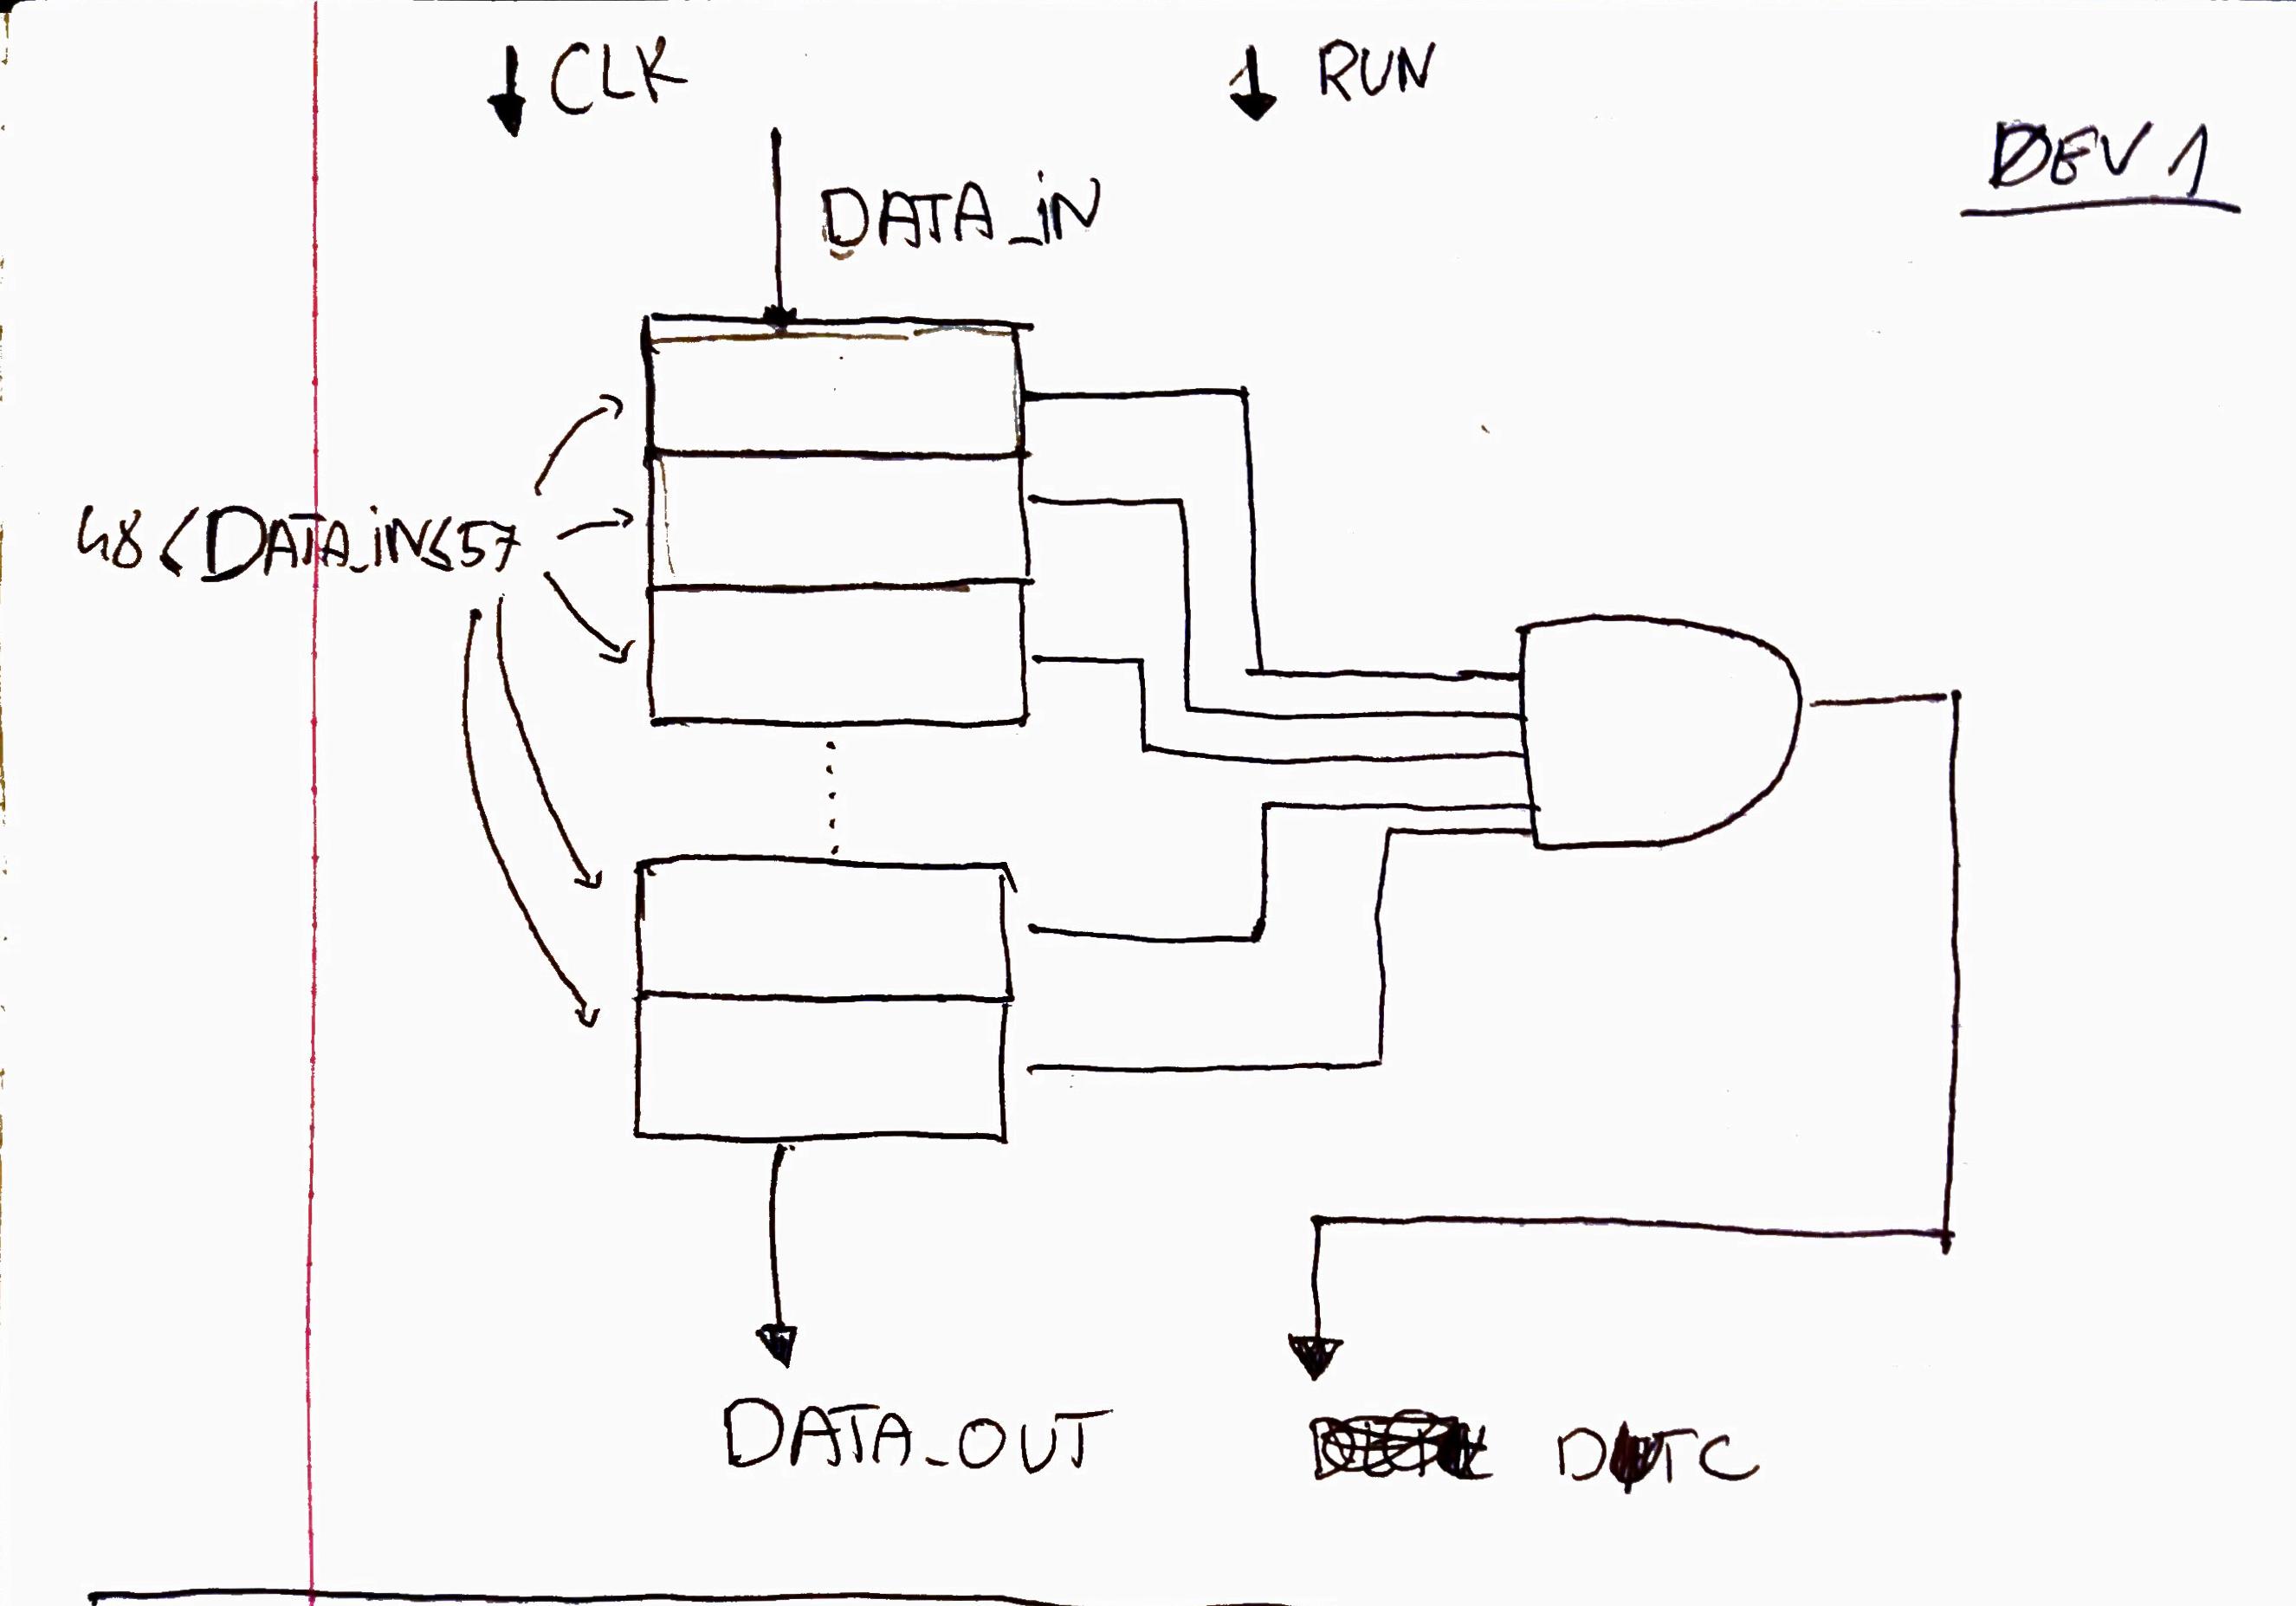 CLK
RUN
DEV 1
DATA_iN
48<DATA_iN≤57
DATA_OUT